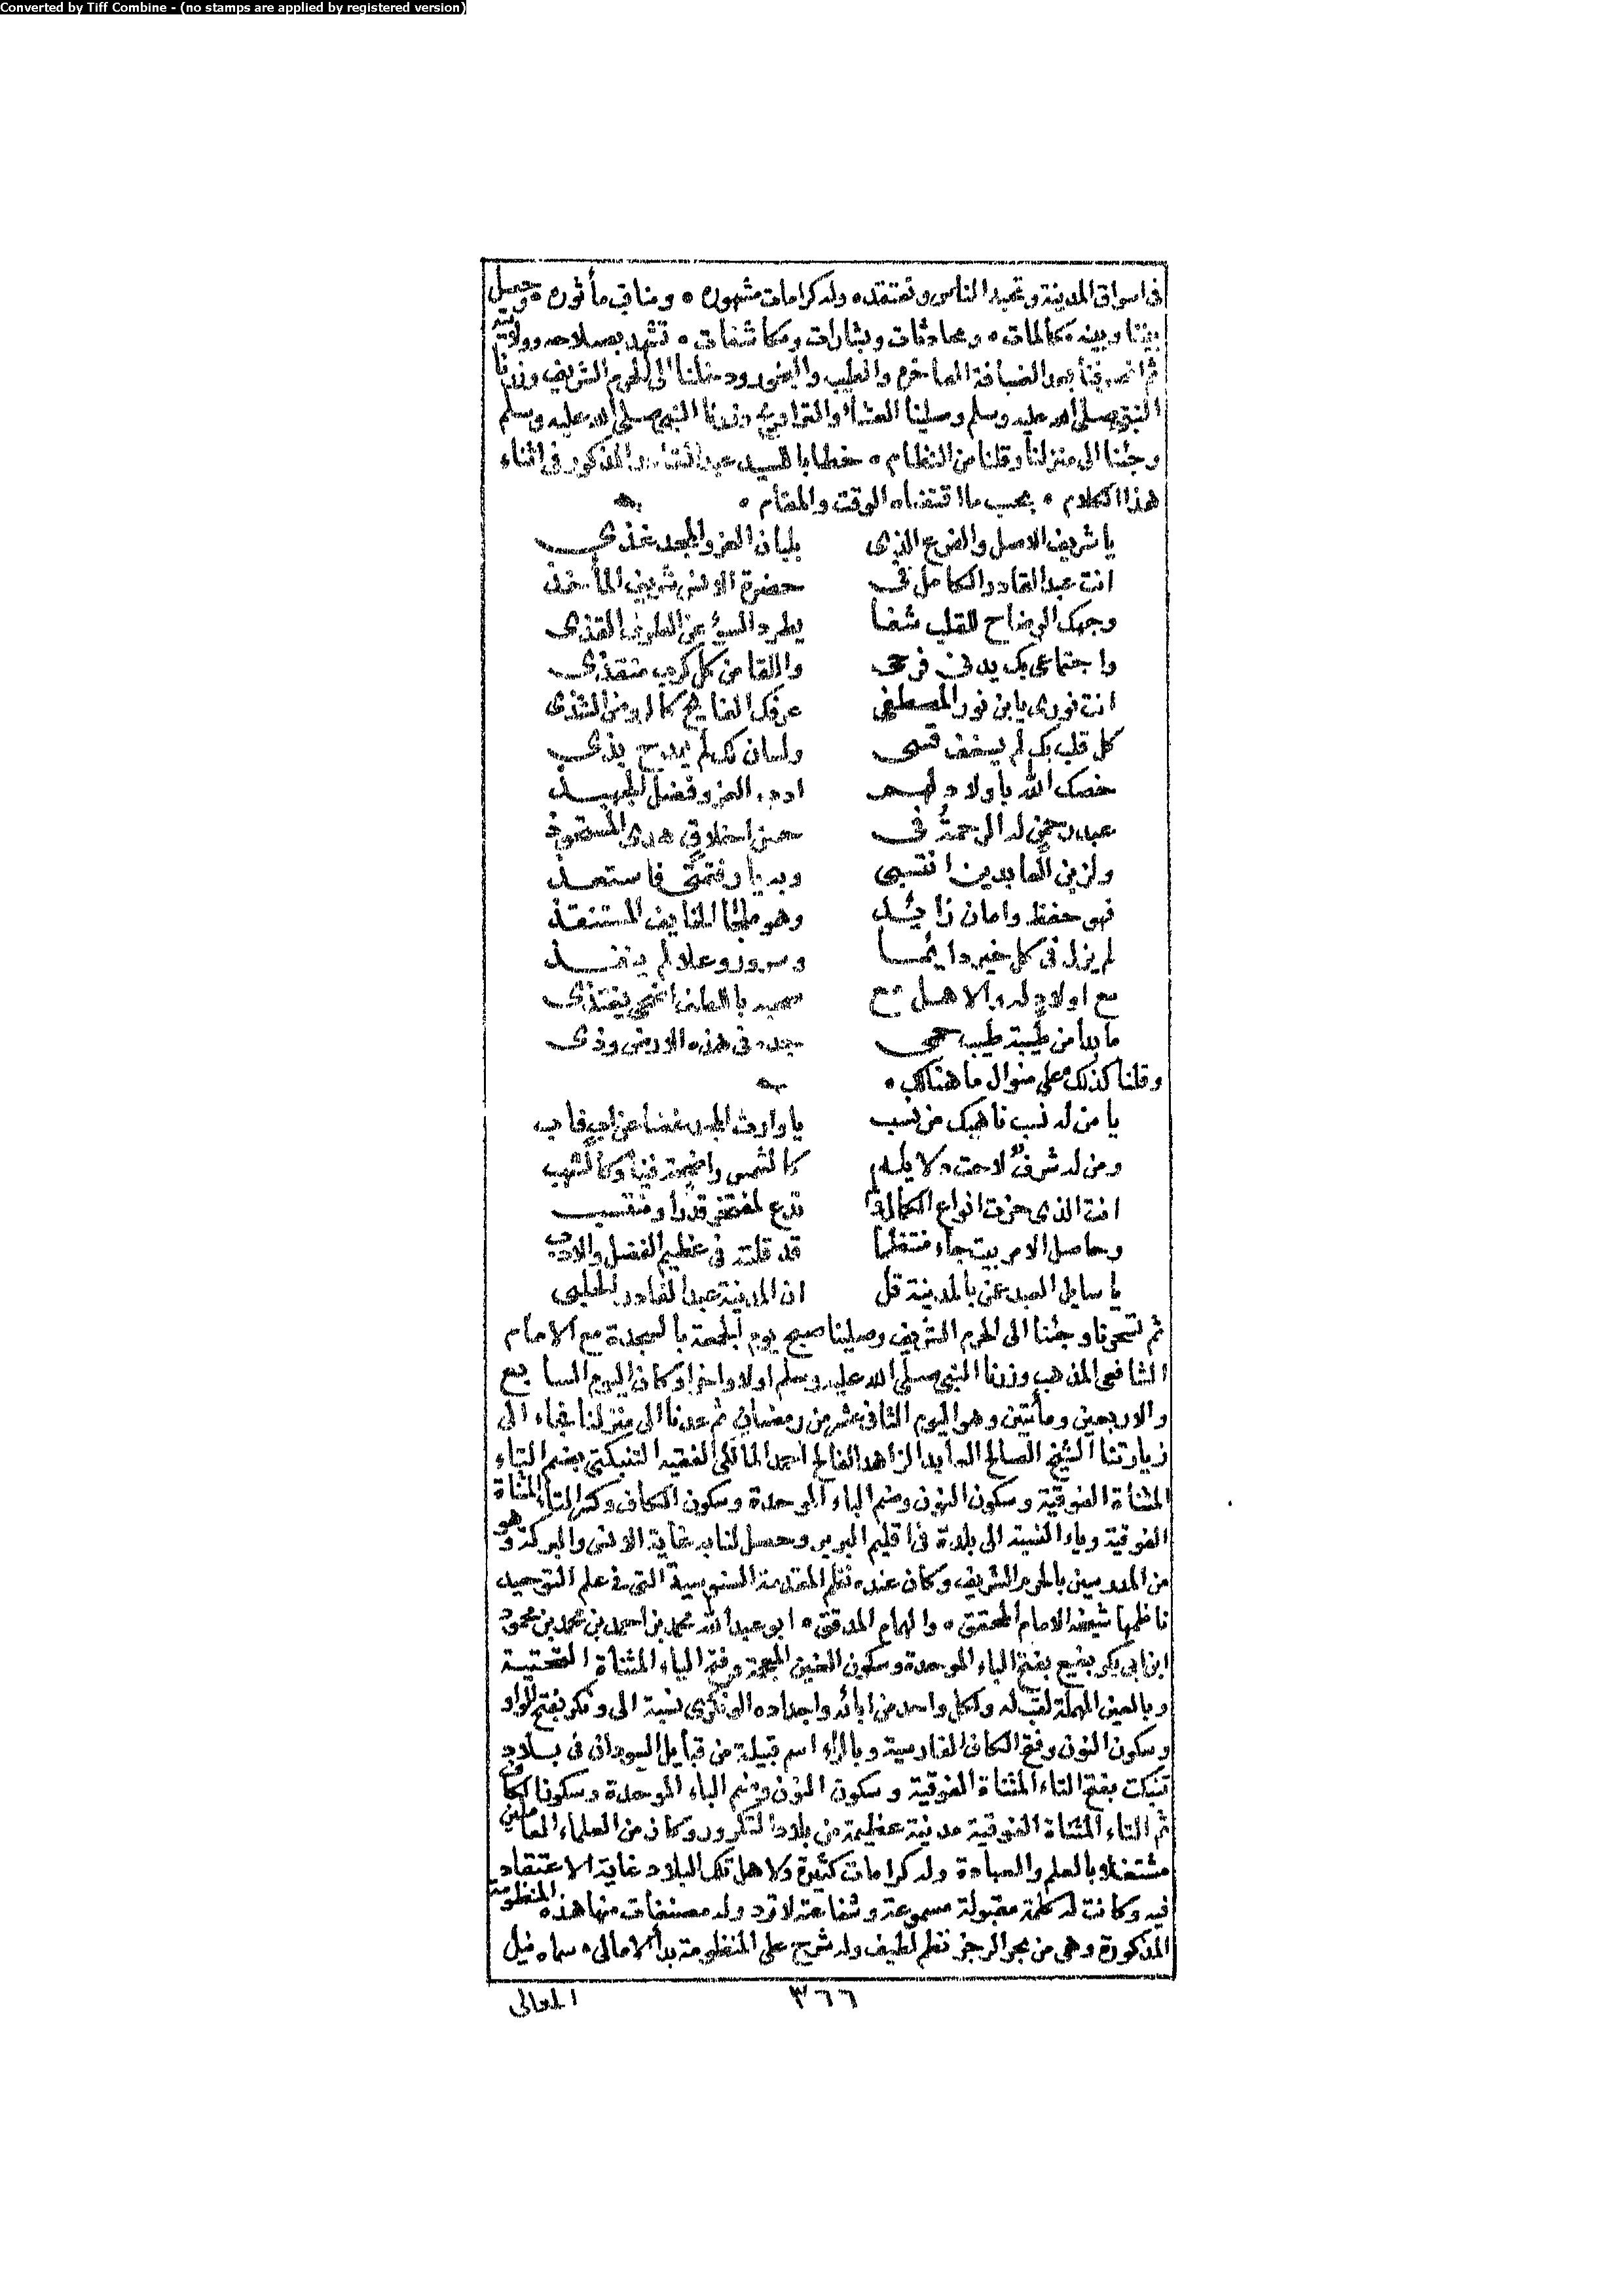 Converted by Tiff Combine - (no stamps are applied by registered version)
فى اسواق المدينة وتحبه الناس وتعتقده وله كرامات مشهوره ومناقب مأثوره وحصل
بيننا وبينه مكالمات ومحادثات وبشارات ومكاشفات تشهد بصلاحه وولايته
ثم انصرفنا بعد الضيافة الفاخره والطيب والبخور ودخلنا الى الحرم الشريف وزرنا
النبى صلى الله عليه وسلم وصلينا العشاء والتراويح وزرنا النبى صلى الله عليه وسلم
وجئنا الى منزلنا وقلنا من النظام خطابا للسيد عبد القادر المذكور فى اثناء
هذا الكلام بحسب ما اقتضاه الوقت والمقام
يا شريف الاصل والفرع الذى بلبان العز والمجد غذى
انت عبد القادر الكامل فى حضرة الانس شريف المأخذ
وجهك الوضاح للقلب شفا يطرد السوء عن الطرف القذى
واجتماعى بك يدنى فرحى واللقا من كل كرب منقذى
انت نورى يا ابن نور المصطفى عرفك الفايح كالروض الشذى
كل قلب بك لم يشغف قسى ولسان لك لم يمدح بذى
خصك الله باولاد لهم ادب العز وفضل الجهبذ
عبد رحمن له الرحمة فى حسن اخلاق هدى المستحوذ
ولزين العابدين انتسبى وبه يا رفعتى فاستعذ
فهو حفظ وامان زايد وهو ملجا للخايف المستنقذ
لم يزل فى كل خير دايما وسرور وعلا لم ينفذ
مع اولاد له والاهل مع صحبه باللطف اضحى يغتذى
ما بدا من طيبة طيب حمى جده فى هذه الارض وذى
وقلنا كذلك على منوال ما هنالك
يا من له نسب ناهيك من نسب يا وارث المجد غضا عن اب فاب
ومن له شرف لاحت دلايله كالشمس واضحة فينا وكالشهب
انت الذى حزت انواع الكمال فلم تدع لمفتخر قدرا ومنتسب
وحاصل الامر بيت جاء منتظما قد قلته فى عظيم الفضل والادب
يا سايل العبد عمن بالمدينة قل ان المدينة عبد القادر الحلبى
ثم تسحرنا وجئنا الى الحرم الشريف وصلينا صبح يوم الجمعة بالسجدة مع الامام
الشافعى المذهب وزرنا النبى صلى الله عليه وسلم اولا واخرا وكان اليوم السابع
والاربعين ومأتين وهو اليوم الثانى عشر من رمضان ثم عدنا الى منزلنا فجاء الى
زيارتنا الشيخ الصالح العابد الزاهد الفالح احمد المالكى الفقيه التنبكتى بضم التاء
المثناة الفوقية وسكون النون وضم الباء الموحدة وسكون الكاف وكسر التاء المثناة
الفوقية وياء النسبة الى بلدة فى اقليم البربر وحصل لنا به غاية الانس والبركة وهو
من المدرسين بالحرم الشريف وكان عنده نظم المقدمة السنوسية التى فى علم التوحيد
ناظمها شيخه الامام المحقق والهمام المدقق ابو عبد الله محمد بن احمد بن محمد بن محمود
ابن ابى بكر بغيع بفتح الباء الموحدة وسكون الغين المعجمة وفتح الياء المثناة التحتية
وبالعين المهملة لقب له ولكل واحد من ابائه واجداده الونكرى نسبة الى ونكر بفتح الواو
وسكون النون وفتح الكاف الفارسية وبالراء اسم قبيلة من قبايل السودان فى بلاد
تنبكت بفتح التاء المثناة الفوقية وسكون النون وضم الباء الموحدة وسكون الكاف
ثم التاء المثناة الفوقية مدينة عظيمة من بلاد التكرور وكان من العلماء العاملين
مشتغلا بالعلم والعبادة وله كرامات كثيرة ولاهل تلك البلاد غاية الاعتقاد
فيه وكانت له كلمة مقبولة مسموعة وشفاعته لا ترد وله مصنفات منها هذه المنظومة
المذكورة وهى من بحر الرجز نظم لطيف وله شرح على المنظومة بدأ الامالى سماه نيل
المعالى
٣٦٦